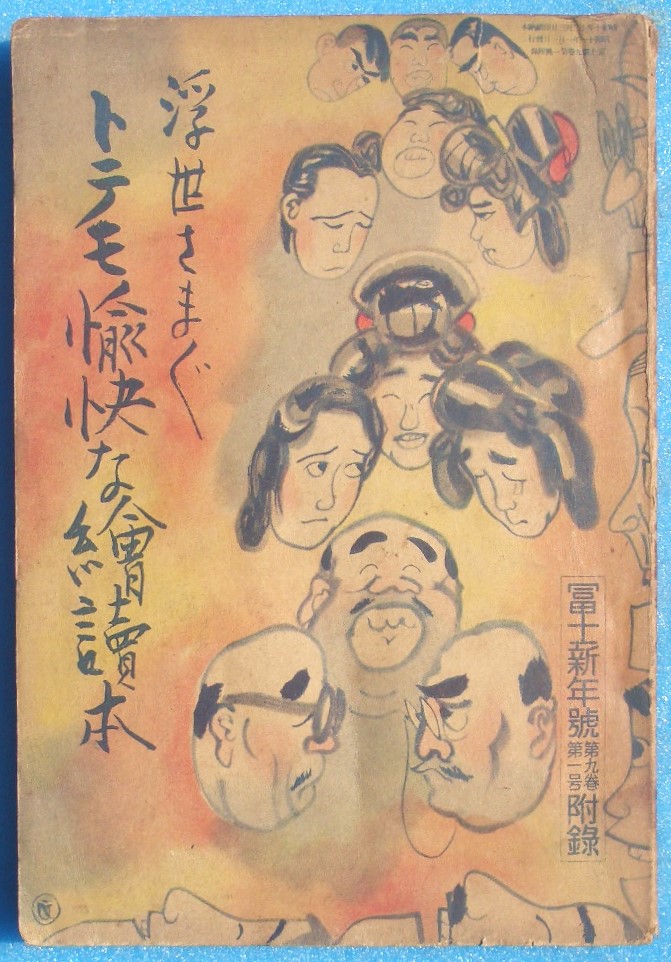 浮世さまぐ
トテモ愉快な繪讀本
冨士新年號
第九巻
第一号
附錄